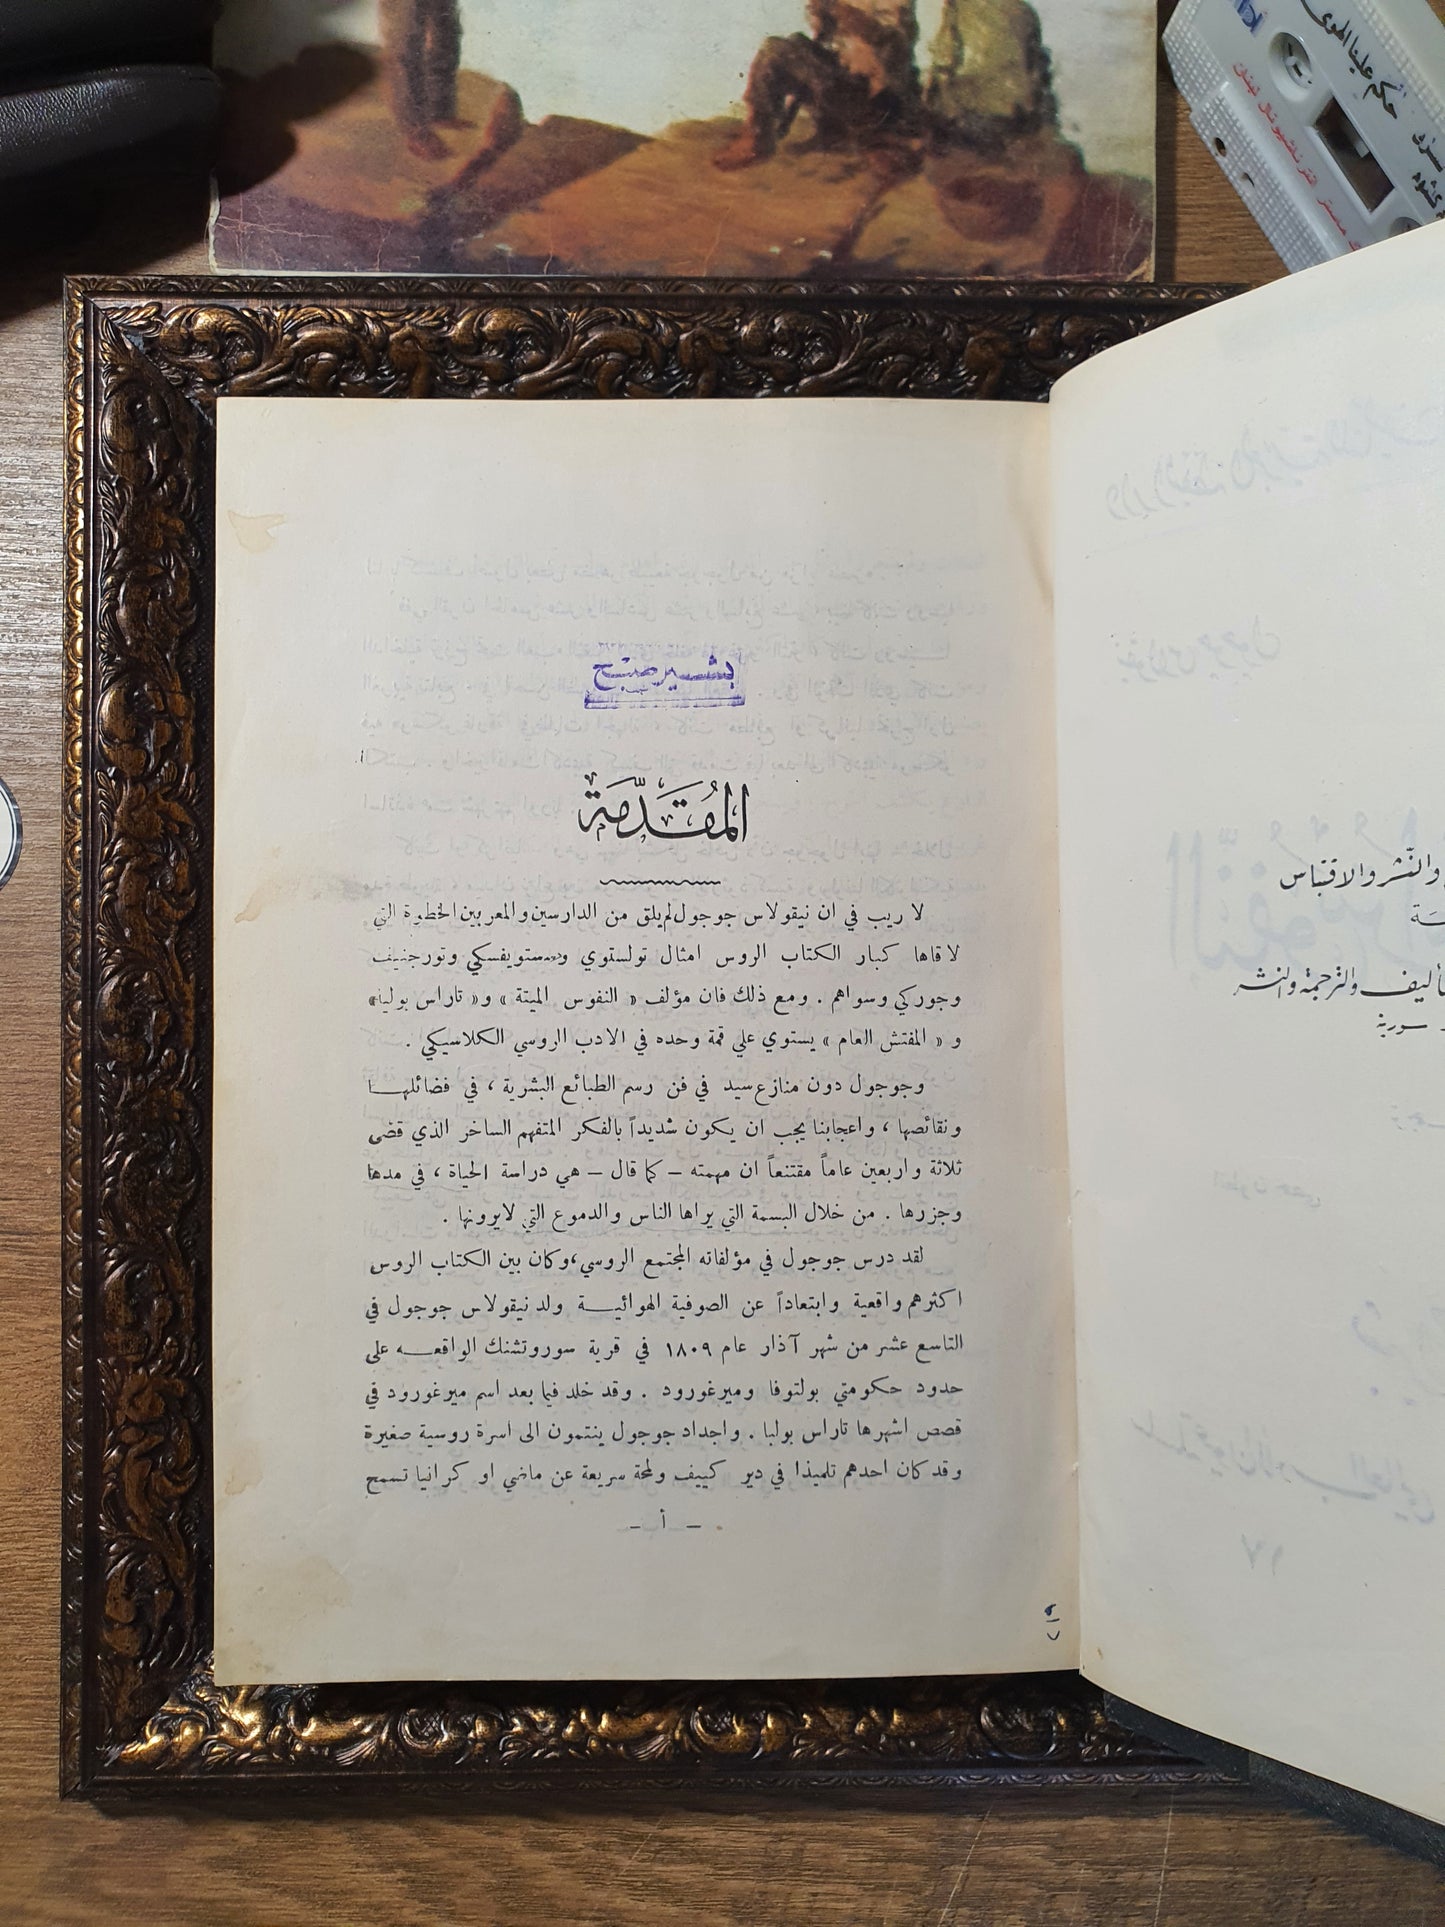 بشير صبح
المُقَدِّمَة
لا ريب في ان نيقولاس جوجول لم يلق من الدارسين والمعربين الخطوة التي
لاقاها كبار الكتاب الروس امثال تولستوي ودستويفسكي وتورجنيف
وجوركي وسواهم . ومع ذلك فان مؤلف « النفوس الميتة » و« تاراس بولبا»
و « المفتش العام » يستوي على قمة وحده في الادب الروسي الكلاسيكي .
وجوجول دون منازع سيد في فن رسم الطبائع البشرية ، في فضائلهـا
ونقائصها ، واعجابنا يجب ان يكون شديداً بالفكر المتفهم الساخر الذي قضى
ثلاثة واربعين عاماً مقتنعاً ان مهمته – كما قال – هي دراسة الحياة ، في مدها
وجزرها . من خلال البسمة التي يراها الناس والدموع التي لايرونها .
لقد درس جوجول في مؤلفاته المجتمع الروسي ،وكان بين الكتاب الروس
اكثرهم واقعية وابتعاداً عن الصوفية الهوائيـــة ولد نيقولاس جوجول في
التاسع عشر من شهر آذار عام ١٨٠٩ في قرية سوروتشنك الواقعـــه على
حدود حكومتي بولتوفا وميرغورود . وقد خلد فيما بعد اسم ميرغورود في
قصص اشهرها تاراس بولبا . واجداد جوجول ينتمون الى اسرة روسية صغيرة
وقد كان احدهم تلميذا في دير كييف ولمحة سريعة عن ماضي او كرانيا تسمح
– أ –
والنّشر والاقتباس
والترجمة والنشر
سورية
حكم علينا الهوى